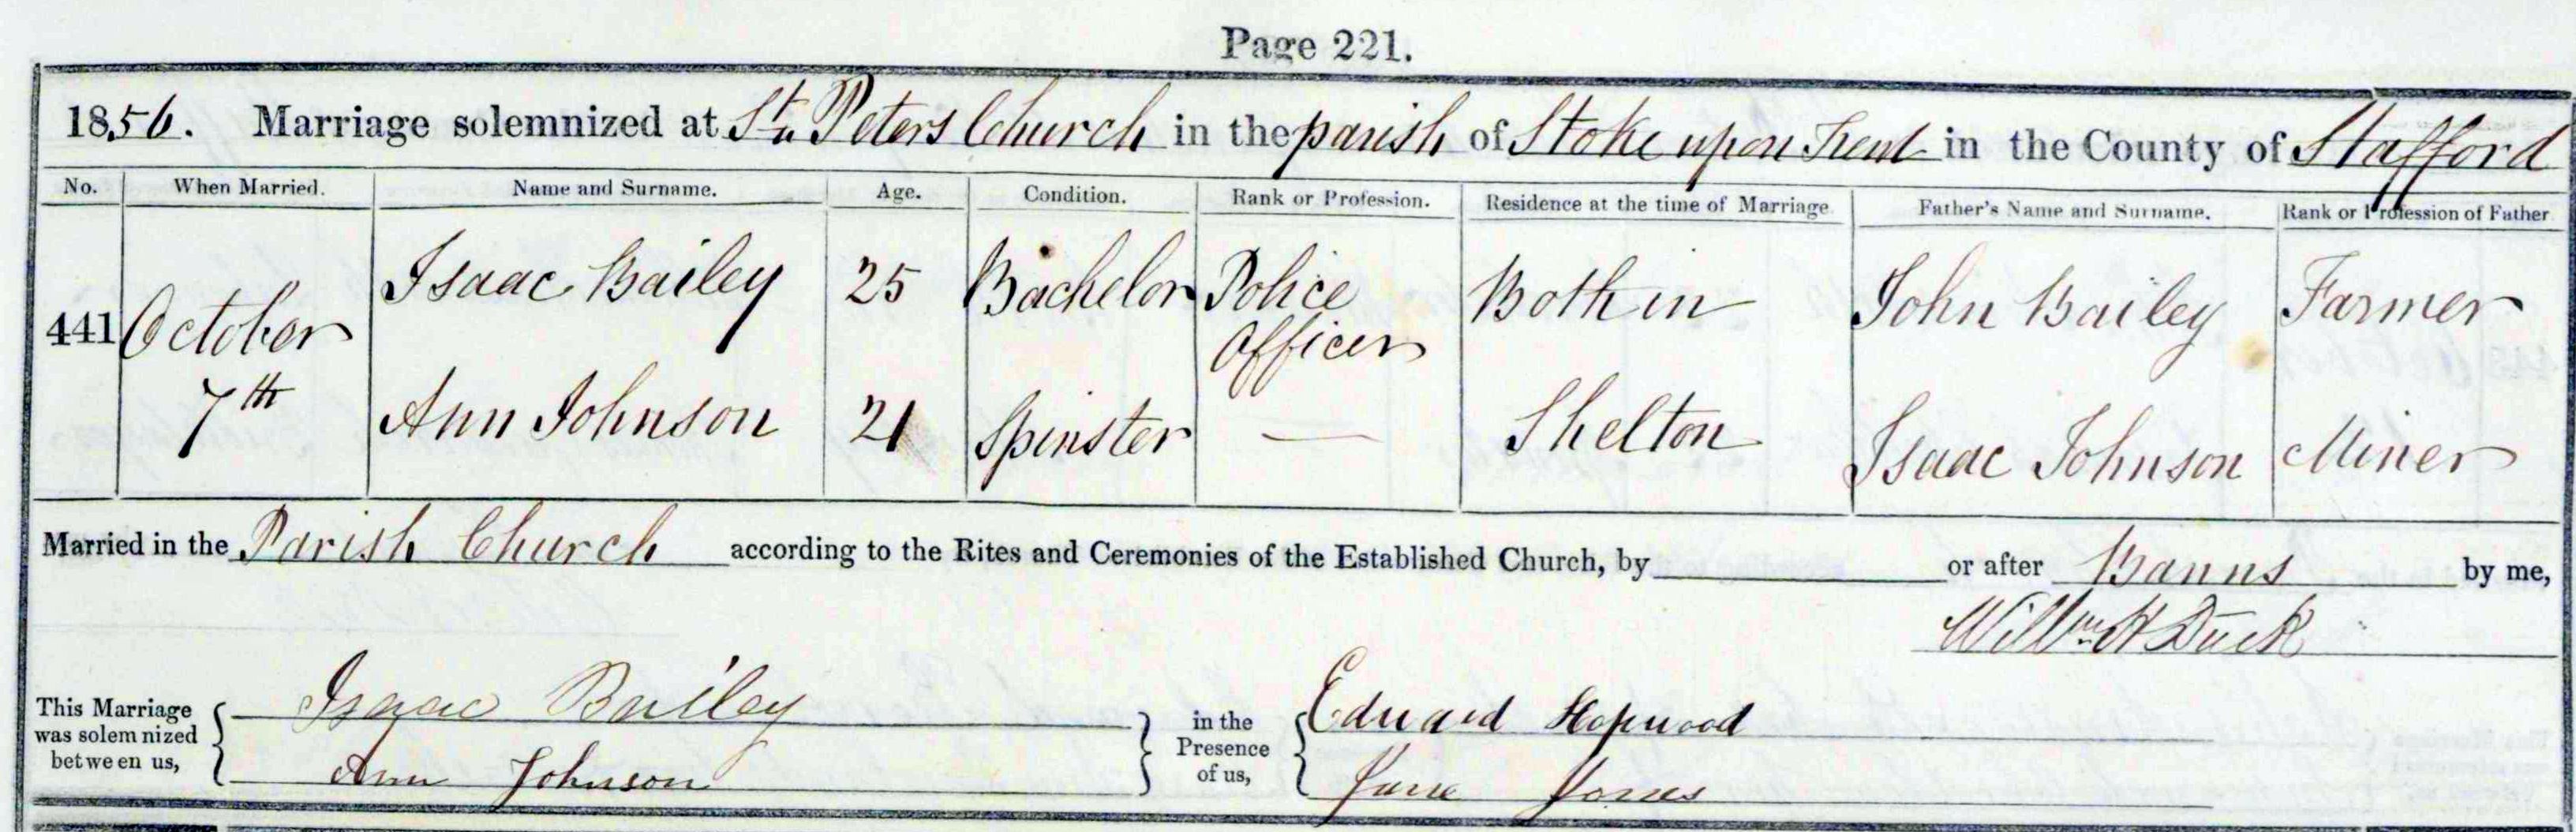 Page 221.
1856. Marriage solemnized at St. Peters Church in the parish of Stoke upon Trent in the County of Stafford
No. When Married. Name and Surname. Age. Condition. Rank or Profession. Residence at the time of Marriage Father's Name and Surname. Rank or Profession of Father
Isaac Bailey 25 Bachelor Police Officer Both in John Bailey Farmer
441 October
7th Ann Johnson 21 Spinster — Shelton Isaac Johnson Miner
Married in the Parish Church according to the Rites and Ceremonies of the Established Church, by or after Banns by me,
Willm H Duck
This Marriage was solemnized between us, Isaac Bailey in the Presence of us, Edward Hopwood
Ann Johnson Jane Jones